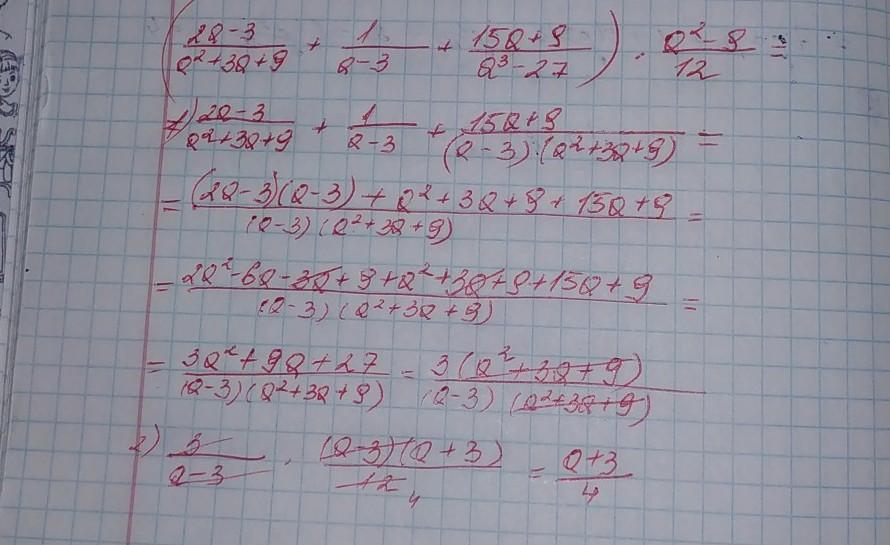 ((2a-3)/(a²+3a+9) + 1/(a-3) + (15a+9)/(a³-27)) · (a²-9)/12 =
1) (2a-3)/(a²+3a+9) + 1/(a-3) + (15a+9)/((a-3)·(a²+3a+9)) =
= ((2a-3)(a-3) + a²+3a+9+15a+9)/((a-3)(a²+3a+9)) =
= (2a²-6a-3a+9+a²+3a+9+15a+9)/((a-3)(a²+3a+9)) =
= (3a²+9a+27)/((a-3)(a²+3a+9)) = 3(a²+3a+9)/((a-3)(a²+3a+9))
2) 3/(a-3) · (a-3)(a+3)/12 4 = (a+3)/4